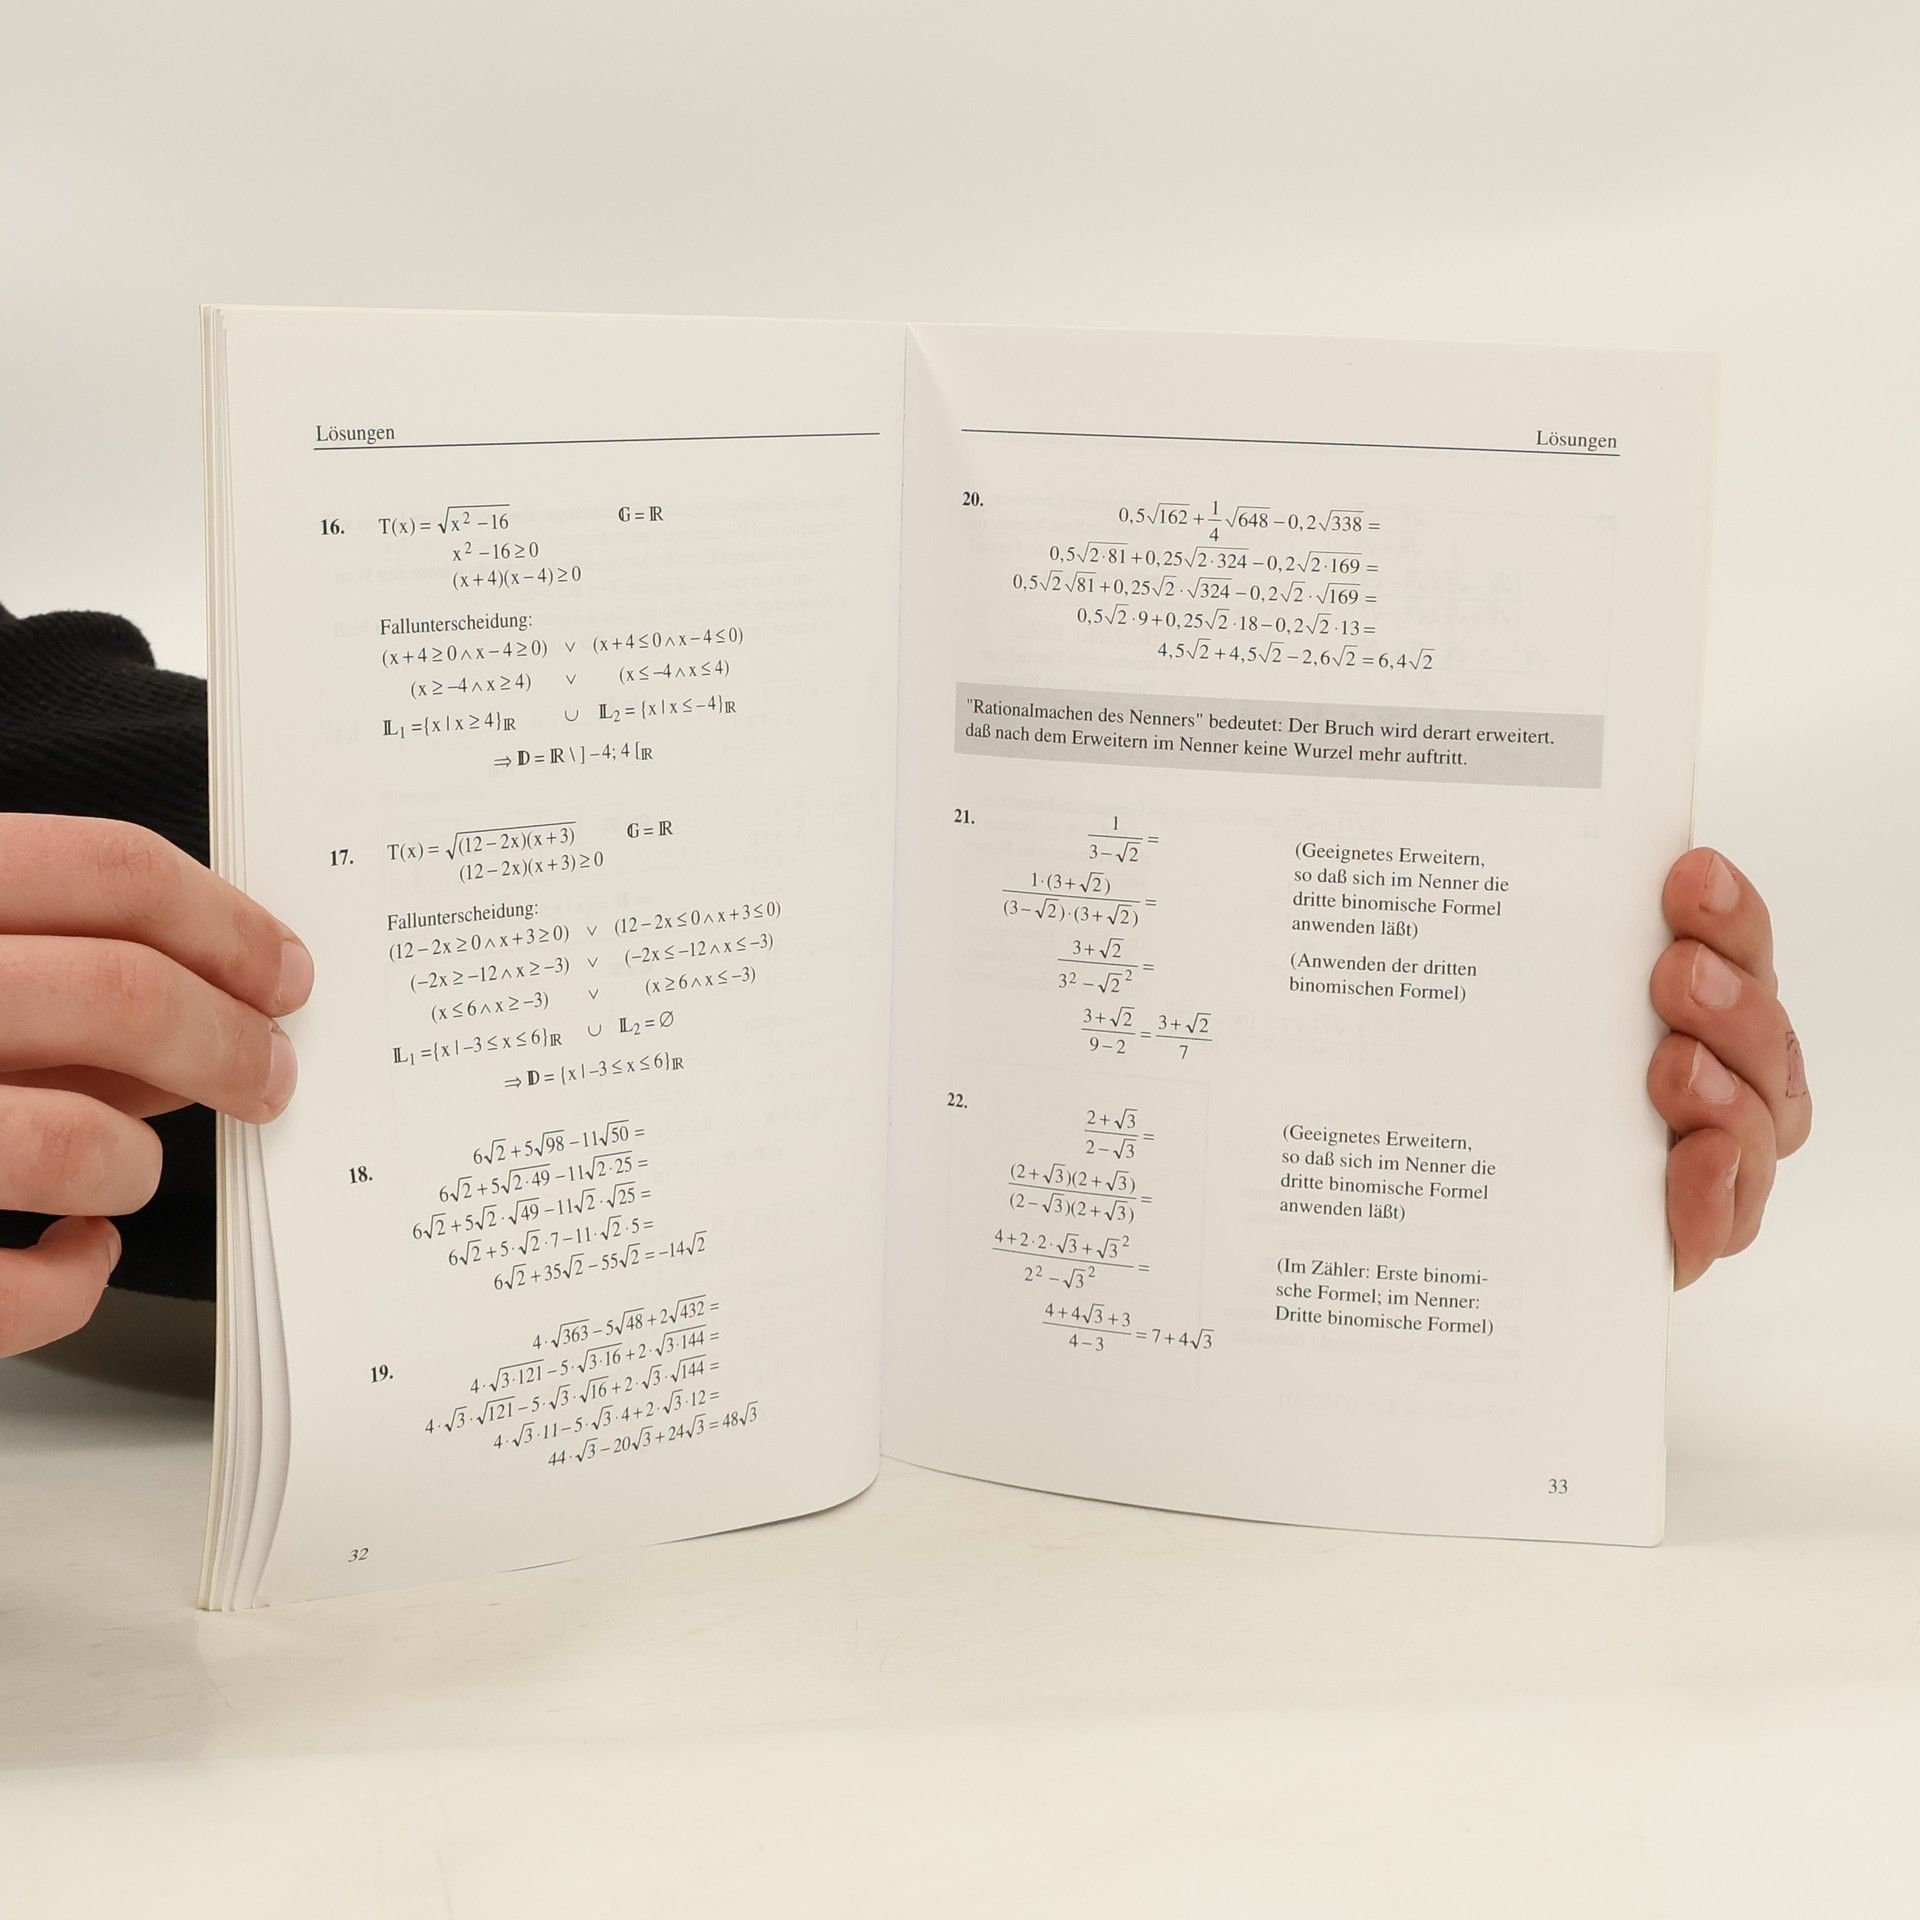 Lösungen
16. T(x) = √(x² − 16) 𝔾 = ℝ
x² − 16 ≥ 0
(x + 4)(x − 4) ≥ 0
Fallunterscheidung:
(x + 4 ≥ 0 ∧ x − 4 ≥ 0) ∨ (x + 4 ≤ 0 ∧ x − 4 ≤ 0)
(x ≥ −4 ∧ x ≥ 4) ∨ (x ≤ −4 ∧ x ≤ 4)
𝕃₁ = {x | x ≥ 4}ℝ ∪ 𝕃₂ = {x | x ≤ −4}ℝ
⇒ 𝔻 = ℝ \ ] −4; 4 [ℝ
17. T(x) = √((12 − 2x)(x + 3)) 𝔾 = ℝ
(12 − 2x)(x + 3) ≥ 0
Fallunterscheidung:
(12 − 2x ≥ 0 ∧ x + 3 ≥ 0) ∨ (12 − 2x ≤ 0 ∧ x + 3 ≤ 0)
(−2x ≥ −12 ∧ x ≥ −3) ∨ (−2x ≤ −12 ∧ x ≤ −3)
(x ≤ 6 ∧ x ≥ −3) ∨ (x ≥ 6 ∧ x ≤ −3)
𝕃₁ = {x | −3 ≤ x ≤ 6}ℝ ∪ 𝕃₂ = ∅
⇒ 𝔻 = {x | −3 ≤ x ≤ 6}ℝ
18. 6√2 + 5√98 − 11√50 =
6√2 + 5√(2·49) − 11√(2·25) =
6√2 + 5√2 · √49 − 11√2 · √25 =
6√2 + 5·√2 · 7 − 11·√2 · 5 =
6√2 + 35√2 − 55√2 = −14√2
19. 4·√363 − 5√48 + 2√432 =
4·√(3·121) − 5·√(3·16) + 2·√(3·144) =
4·√3·√121 − 5·√3·√16 + 2·√3·√144 =
4·√3·11 − 5·√3·4 + 2·√3·12 =
44·√3 − 20√3 + 24√3 = 48√3
32
Lösungen
20. 0,5√162 + 1/4 √648 − 0,2√338 =
0,5√(2·81) + 0,25√(2·324) − 0,2√(2·169) =
0,5√2√81 + 0,25√2·√324 − 0,2√2·√169 =
0,5√2·9 + 0,25√2·18 − 0,2√2·13 =
4,5√2 + 4,5√2 − 2,6√2 = 6,4√2
"Rationalmachen des Nenners" bedeutet: Der Bruch wird derart erweitert.
daß nach dem Erweitern im Nenner keine Wurzel mehr auftritt.
21. 1/(3 − √2) =
(Geeignetes Erweitern,
so daß sich im Nenner die
dritte binomische Formel
anwenden läßt)
1·(3 + √2)/((3 − √2)·(3 + √2)) =
(3 + √2)/(3² − √2²) =
(Anwenden der dritten
binomischen Formel)
(3 + √2)/(9 − 2) = (3 + √2)/7
22. (2 + √3)/(2 − √3) =
(Geeignetes Erweitern,
so daß sich im Nenner die
dritte binomische Formel
anwenden läßt)
(2 + √3)(2 + √3)/((2 − √3)(2 + √3)) =
(4 + 2·2·√3 + √3²)/(2² − √3²) =
(Im Zähler: Erste binomi-
sche Formel; im Nenner:
Dritte binomische Formel)
(4 + 4√3 + 3)/(4 − 3) = 7 + 4√3
33